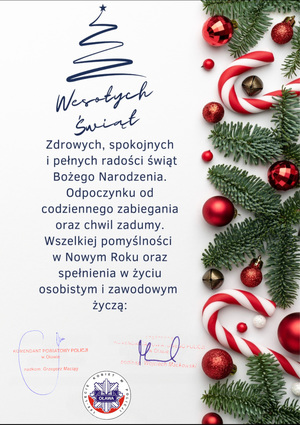 Wesołych
Świąt
Zdrowych, spokojnych
i pełnych radości świąt
Bożego Narodzenia.
Odpoczynku od
codziennego zabiegania
oraz chwil zadumy.
Wszelkiej pomyślności
w Nowym Roku oraz
spełnienia w życiu
osobistym i zawodowym
życzą:
KOMENDANT POWIATOWY POLICJI
w Oławie
OŁAWA